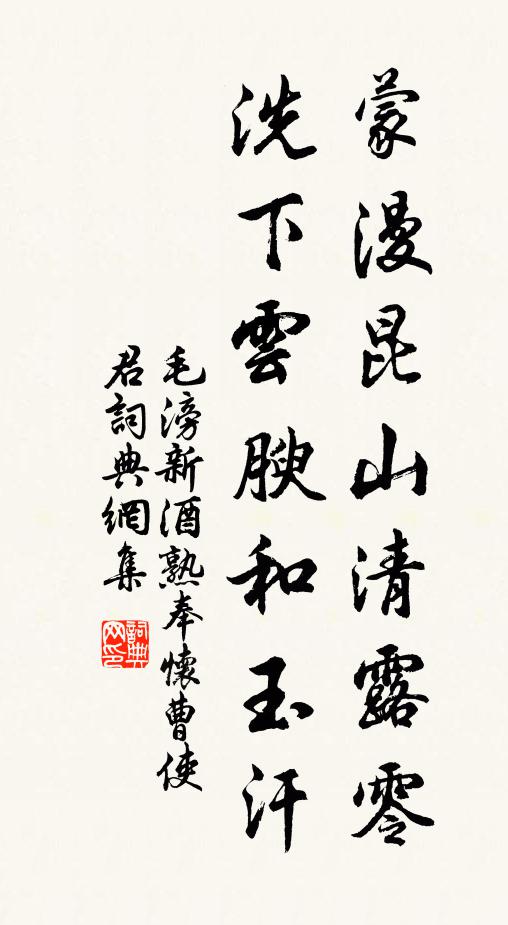 蒙漫昆山清露零
洗下雲腴和玉汗
毛滂新酒熟奉懷曹使
君詞典網集
詞典网印